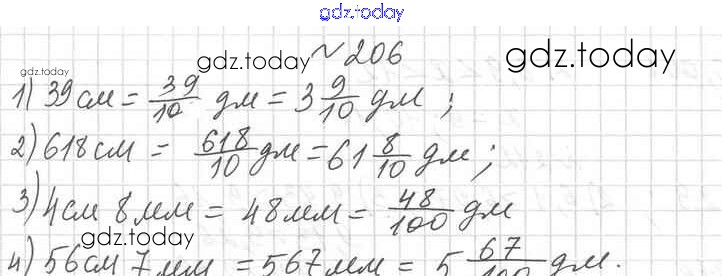 gdz.today
gdz.today № 206 gdz.today
gdz.today
1) 39 см = 39/10 дм = 3 9/10 дм;
2) 618 см = 618/10 дм = 61 8/10 дм;
3) 4 см 8 мм = 48 мм = 48/100 дм
gdz.today
4) 56 см 7 мм = 567 мм = 5 67/100 дм.